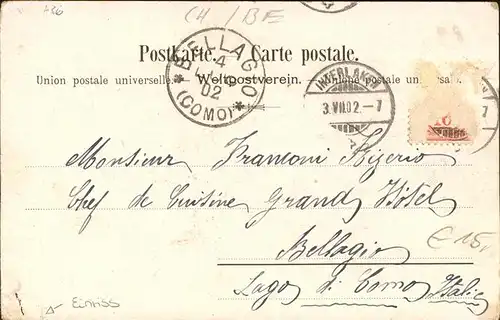 56
CH / BE
Postkarte. Carte postale.
Union postale universelle. Weltpostverein. Unione postale universale.
BELLAGIO
4
02
(COMO)
INTERLAKEN
3.VII.02.-7
10
Monsieur Franconi
Chef de Cuisine Grand Hôtel
Bellagio
€ 15,
Lago di Como Italie
Einriss